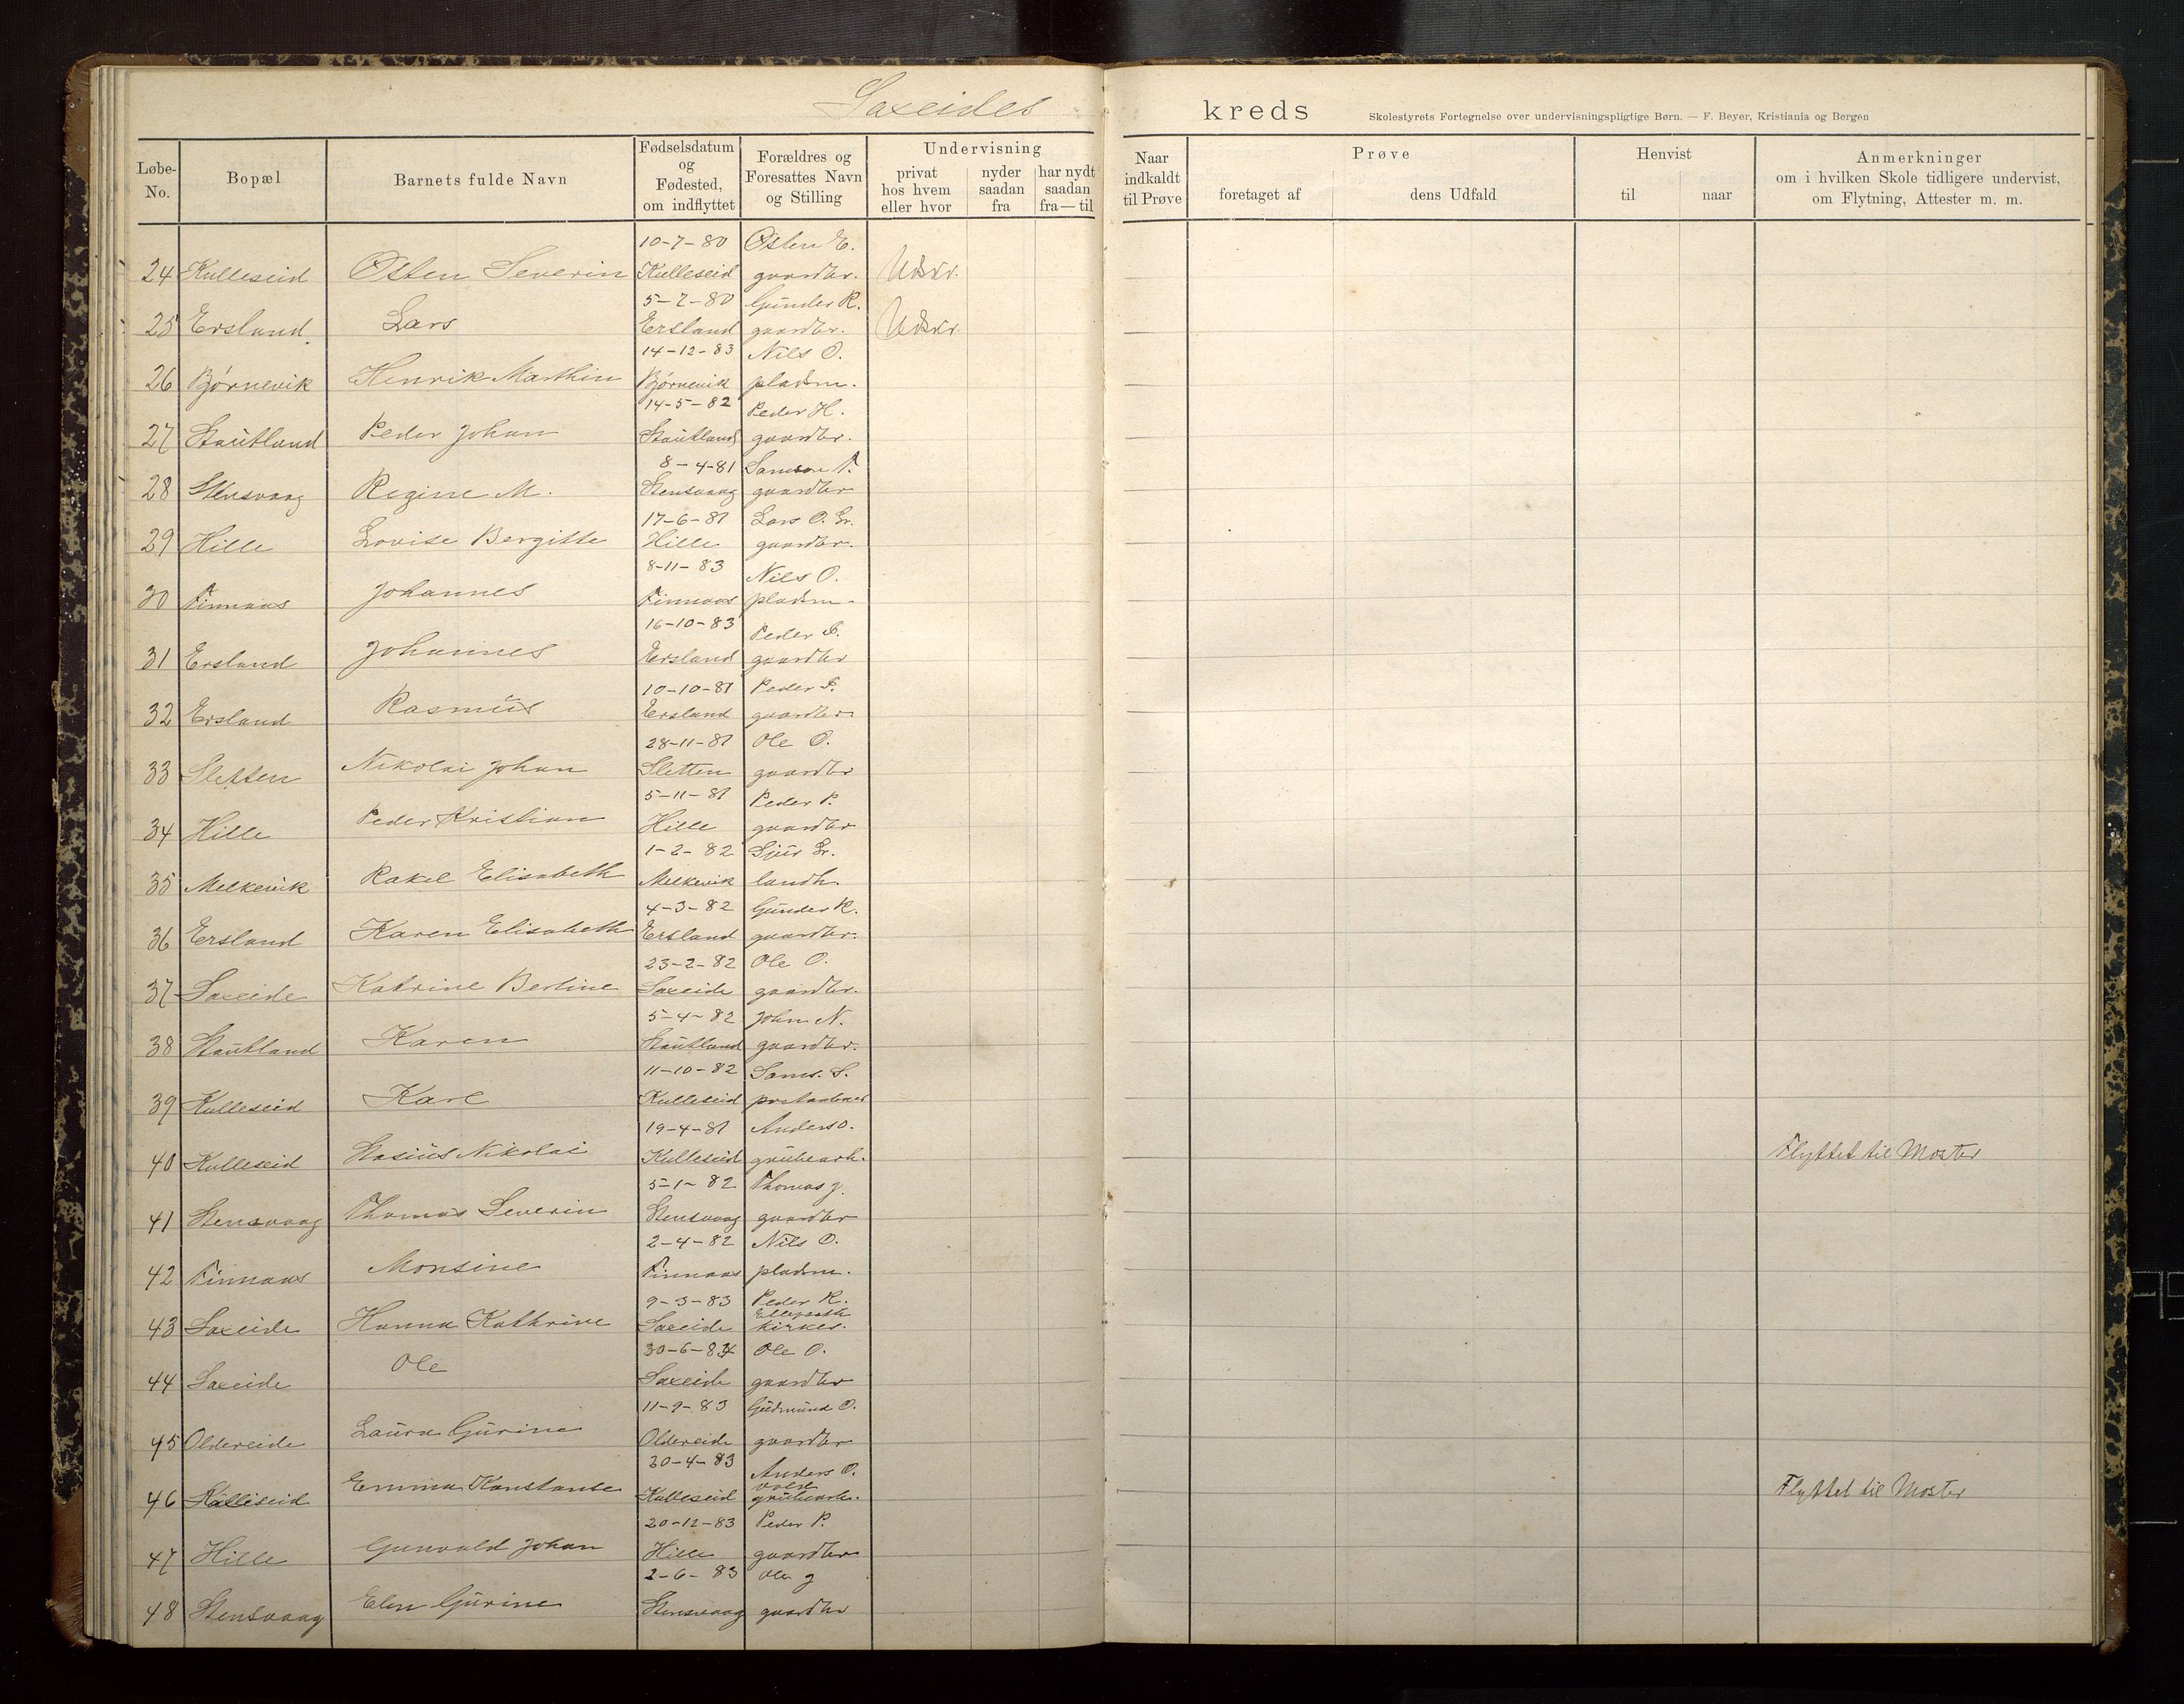 Saxeides kreds
Skolestyrets Fortegnelse over undervisningspligtige Børn. — F. Beyer, Kristiania og Bergen
Løbe-No. Bopæl Barnets fulde Navn Fødselsdatum og Fødested, om indflyttet Forældres og Foresattes Navn og Stilling Undervisning privat hos hvem eller hvor nyder saadan fra har nydt saadan fra — til Naar indkaldt til Prøve Prøve foretaget af dens Udfald Henvist til naar Anmerkninger om i hvilken Skole tidligere undervist, om Flytning, Attester m. m.
10-7-80 Østen E.
24 Kulleseid Østen Severin Kulleseid gaardbr. Udskr.
5-2-80 Gunder R.
25 Ersland Lars Ersland gaardbr. Udskr.
14-12-83 Nils O.
26 Bjørnevik Henrik Marthin Bjørnevik pladsm.
14-5-82 Peder H.
27 Stautland Peder Johan Stautland gaardbr.
8-4-81 Samson T.
28 Stensvaag Regine M. Stensvaag gaardbr
17-6-81 Lars O.
29 Hille Lovise Bergitte Hille gaardbr.
8-11-83 Nils O.
30 Finnaas Johannes Finnaas pladsm.
16-10-83 Peder S.
31 Ersland Johannes Ersland gaardbr
10-10-81 Peder S.
32 Ersland Rasmus Ersland gaardbr
28-11-81 Ole O.
33 Sletten Nikolai Johan Sletten gaardbr
5-11-81 Peder P.
34 Hille Peder Kristian Hille gaardbr
1-2-82 Sjur
35 Melkevik Rakel Elisabeth Melkevik landh.
4-3-82 Gunder R.
36 Ersland Karen Elisabeth Ersland gaardbr.
23-2-82 Ole O.
37 Saxeide Katrine Bertine Saxeide gaardbr.
5-4-82 John N.
38 Stautland Karen Stautland gaardbr.
11-10-82 Sams. S.
39 Kulleseid Karl Kulleseid
19-4-81 Anders O.
40 Kulleseid Stasius Nikolai Kulleseid grubearb. Flyttet til Moster
5-1-82 Thomas J.
41 Stensvaag Thomas Severin Stensvaag gaardbr
2-4-82 Nils O.
42 Finnaas Monsine Finnaas pladsm.
9-3-83 Peder R.
43 Saxeide Hanna Kathrine Saxeide kirkes.
30-6-84 Ole O.
44 Saxeide Ole Saxeide gaardbr
11-9-83 Gudmund O.
45 Oldereide Laura Gurine Oldereide gaardbr
20-4-83 Anders O.
46 Kulleseid Emma Konstanse Kulleseid grubearb. Flyttet til Moster
20-12-83 Peder P.
47 Hille Gunvald Johan Hille gaardbr
2-6-83 Ole J
48 Stensvaag Elen Gurine Stensvaag gaardbr